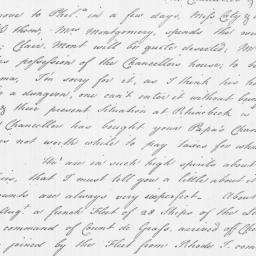 move to Phil.a in a few days, Miss Caty &
them, Mrs Montgomery, spends the
Clair, Mont will be quite deserted,
possession of the Chancellors house, to be
I'm sorry for it, as I think his
a dungeon, one can't enter it without
& their present Situation at Rhinebeck is
Chancellor has bought your Papa's
not worth while to pay taxes for what
We are in such high spirits about
that I must tell you a little about it
are always very imperfect — About
Augt a french Fleet of 28 Ships of the
command of Count de Grass, arrived off
joined by the Fleet from Rhode I. com